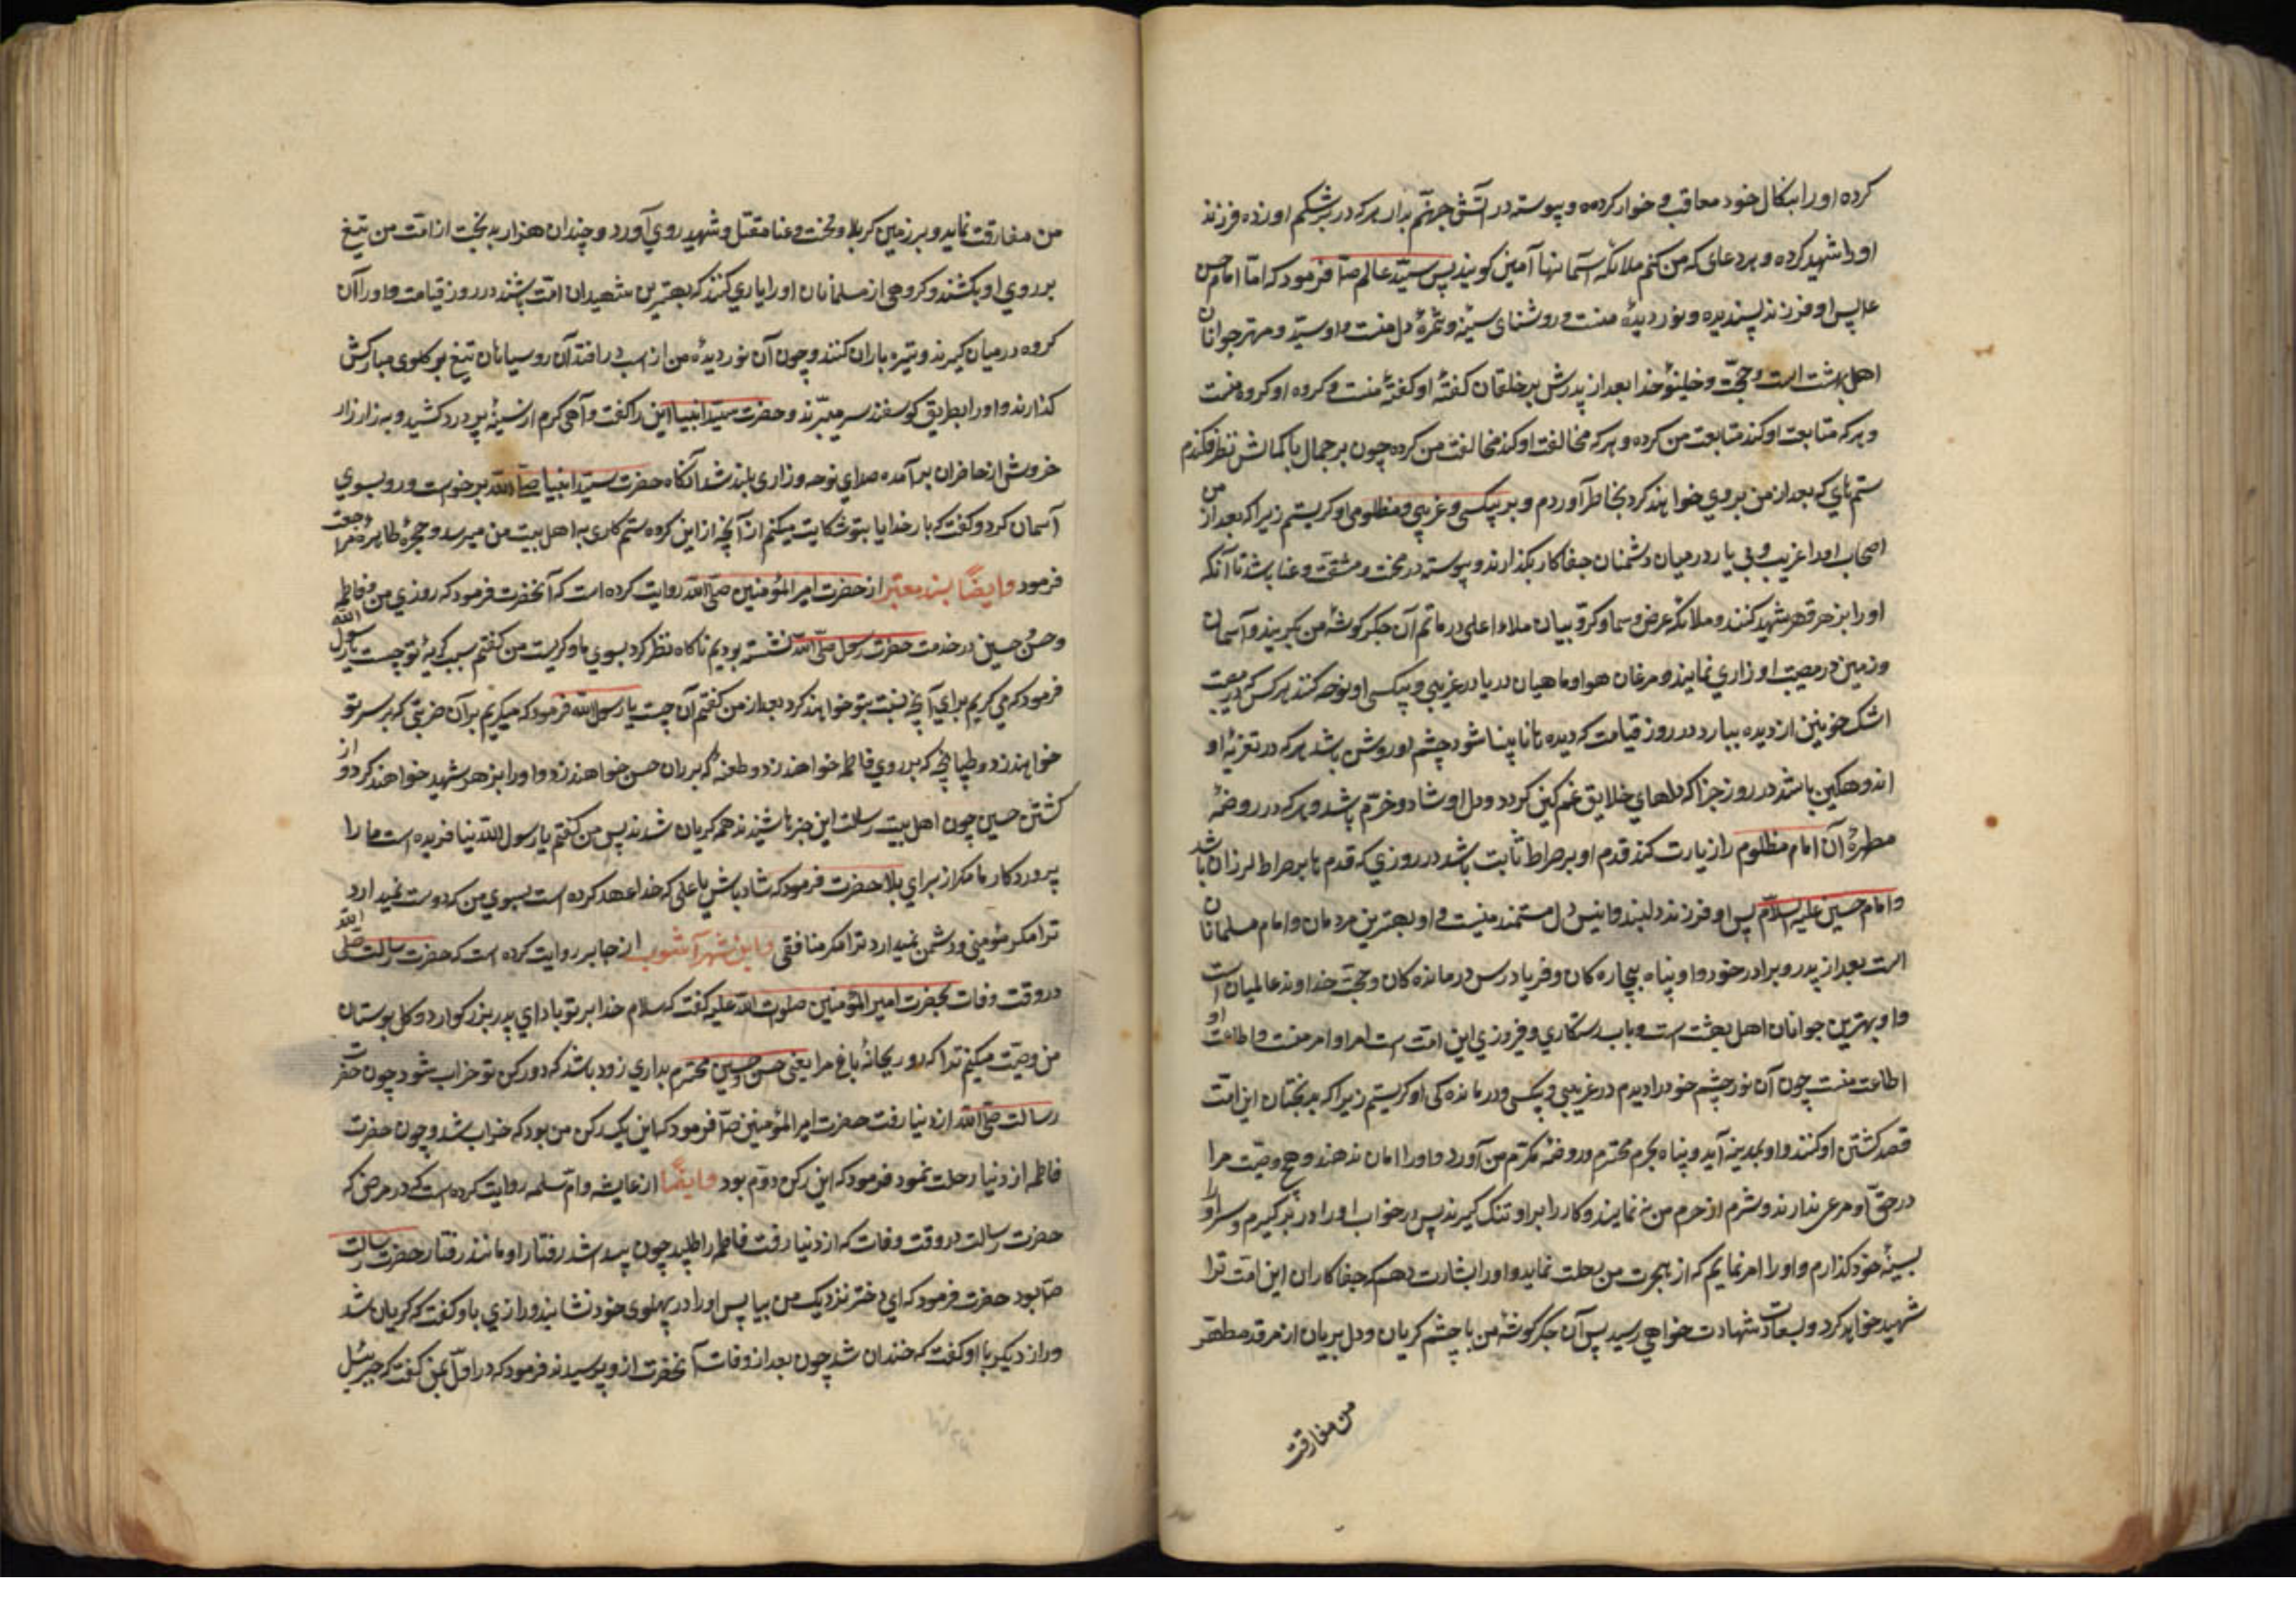 کرده او را بنکال خود معاقب و خوار کرده و پیوسته در آتش جهنم بدار هرکه در بر شکم او زده فرزند
او را شهید کرده و هر دعای که من کنم ملائکه آسمانها آمین کویند پس سید عالم صآ فرمود که امّا امام حسن
ع پس او فرزند پسندیده و نور دیدهٔ منست و روشنای سینه و ثمرهٔ دل منست و او سیّد و مهتر جوانان
اهل بهشت است و حجّت و خلیفهٔ خدا بعد از پدرش بر خلقان کفتهٔ او کفتهٔ منست و کروه او کروه منست
و هرکه متابعت او کند متابعت من کرده و هرکه مخالفت او کند مخالفت من کرده چون بر جمال با کمالش نظر فکندم
ستم های که بعد از من بر وی خواهند کرد بخاطر آوردم و بر بیکسی و غریبی و مظلومی او کریستم زیرا که بعد از من
اصحاب او را غریب و بی یار در میان دشمنان جفاکار بکذارند و پیوسته در محنت و مشقت و عنا باشد تا آنکه
او را بزهر قهر شهید کنند و ملائکه عرض و سما و کروبیان ملاء اعلی در ماتم آن جکر کوشهٔ من بکریند و آسمان
و زمین در مصیبت او زاری نمایند و مرغان هوا و ماهیان دریا در غریبی و بیکسی او نوحه کنند هرکس که در مصیبت
اشک خونین از دیده ببارد در روز قیامت که دیده ها نابینا شود چشم او روشن باشد هرکه در تعزیهٔ او
اندوهکین باشد در روز جزا که دلهای خلایق غم کین کردد و دل او شاد و خرّم باشد و هرکه در روضهٔ
مطهرهٔ آن امام مظلوم را زیارت کند قدم او بر صراط ثابت باشد در روزی که قدم ها بر صراط لرزان باشد
و امام حسین علیه السلام پس او فرزند دلبند و انیس دل مستمند منست و او بهترین مردمان و امام مسلمانان
است بعد از پدر و برادر خود و او پناه بیچاره کان و فریادرس درمانده کان و حجّت خداوند عالمیان است
و او بهترین جوانان اهل بهشت است و باب رستکاری و فیروزی این امت است امر او امر منست و اطاعت او
اطاعت منست چون آن نور چشم خود را دیدم در غریبی و بیکسی و درمانده کی او کریستم زیرا که بدبختان این امّت
قصد کشتن او کنند و او بمدینه آید و پناه بحرم محترم و روضهٔ مکرّم من آورد و او را امان ندهند و هیچ وصیّت مرا
در حقّ او مرعی ندارند و شرم از حرم من ننمایند و کار را بر او تنک کیرند پس در خواب او را در بر کیرم و سر او را
بسینهٔ خود کذارم و او را امر نمایم که از هجرت من رحلت نماید و او را بشارت دهم که جفاکاران این امّت ترا
شهید خواهد کرد و بسعادت شهادت خواهی رسید پس آن جکر کوشهٔ من با چشم کریان و دل بریان از مرقد مطهّر
من مفارقت
من مفارقت نماید و بر زمین کربلا و محنت و عنا مقتل و شهید روی آورد و چندان هزار بدبخت از امّت من تیغ
بر روی او بکشند و کروهی از مسلمانان او را یاری کنند که بهترین شهیدان امّت باشند در روز قیامت و او را آن
کروه در میان کیرند و تیره باران کنند و چون آن نور دیدهٔ من از اسب درافتد آن روسیاهان تیغ بر کلوی مبارکش
کذارند و او را بطریق کوسفند سر میبرند و حضرت سیّد انبیا این را کفت و آهی کرم از سینهٔ پر درد کشید و به زار زار
خروش از حاضران برآمده صدای نوحه و زاری بلند شد آنکاه حضرت سیّد انبیا صلّ الله برخواست و رو بسوی
آسمان کرد و کفت که بار خدایا بتو شکایت میکنم از آنچه از این کروه ستم کاری به اهل بیت من میرسد و بحجرهٔ طاهره مراجعت
فرمود و ایضًا بسند معتبر از حضرت امیر المؤمنین صلّی الله روایت کرده است که آنحضرت فرمود که روزی من و فاطمه
و حسن و حسین در خدمت حضرت رسول صلّی الله نشسته بودیم ناکاه نظر کرد بسوی ما و کریست من کفتم سبب کریهٔ تو چیست یا رسول الله
فرمود که می کریم برای آنچه نسبت بتو خواهند کرد بعد از من کفتم آن چیست یا رسول الله فرمود که میکریم بر آن ضربتی که بر سر تو
خواهند زد و طپانچه که بر روی فاطمه خواهند زد و طعنه که بر ران حسن خواهند زد و او را بزهر شهید خواهند کرد و از
کشتن حسین چون اهل بیت رسالت این خبرها شنیدند همه کریان شدند پس من کفتم یا رسول الله نیافریده است ما را
پروردکار ما مکر از برای بلا حضرت فرمود که شاد باش یا علی که خدا عهد کرده است بسوی من که دوست نمیدارد
ترا مکر مؤمنی و دشمن نمیدارد ترا مکر منافقی و ابن شهر آشوب از جابر روایت کرده است که حضرت رسالت صلّی الله
در وقت وفات بحضرت امیر المؤمنین صلوات الله علیه کفت که سلام خدا بر تو باد ای پدر بزرکوار دو کل بوستان
من وصیّت میکنم ترا که دو ریحانهٔ باغ مرا یعنی حسن و حسین محترم بداری زود باشد که دو رکن تو خراب شود چون حضرت
رسالت صلّی الله از دنیا رفت حضرت امیر المؤمنین صآ فرمود که این یک رکن من بود که خراب شد و چون حضرت
فاطمه از دنیا رحلت نمود فرمود که این رکن دوّم بود و ایضًا از عایشه و امّ سلمه روایت کرده است که در مرض که
حضرت رسالت در وقت وفات که از دنیا رفت فاطمه را طلبید چون پیدا شد رفتار او مانند رفتار حضرت رسالت
صآ بود حضرت فرمود که ای دختر نزدیک من بیا پس او را در پهلوی خود نشانید و رازی باو کفت که کریان شد
و راز دیکر با او کفت که خندان شد چون بعد از وفات آنحضرت از و پرسیدند فرمود که در اوّل بمن کفت که جبرئیل